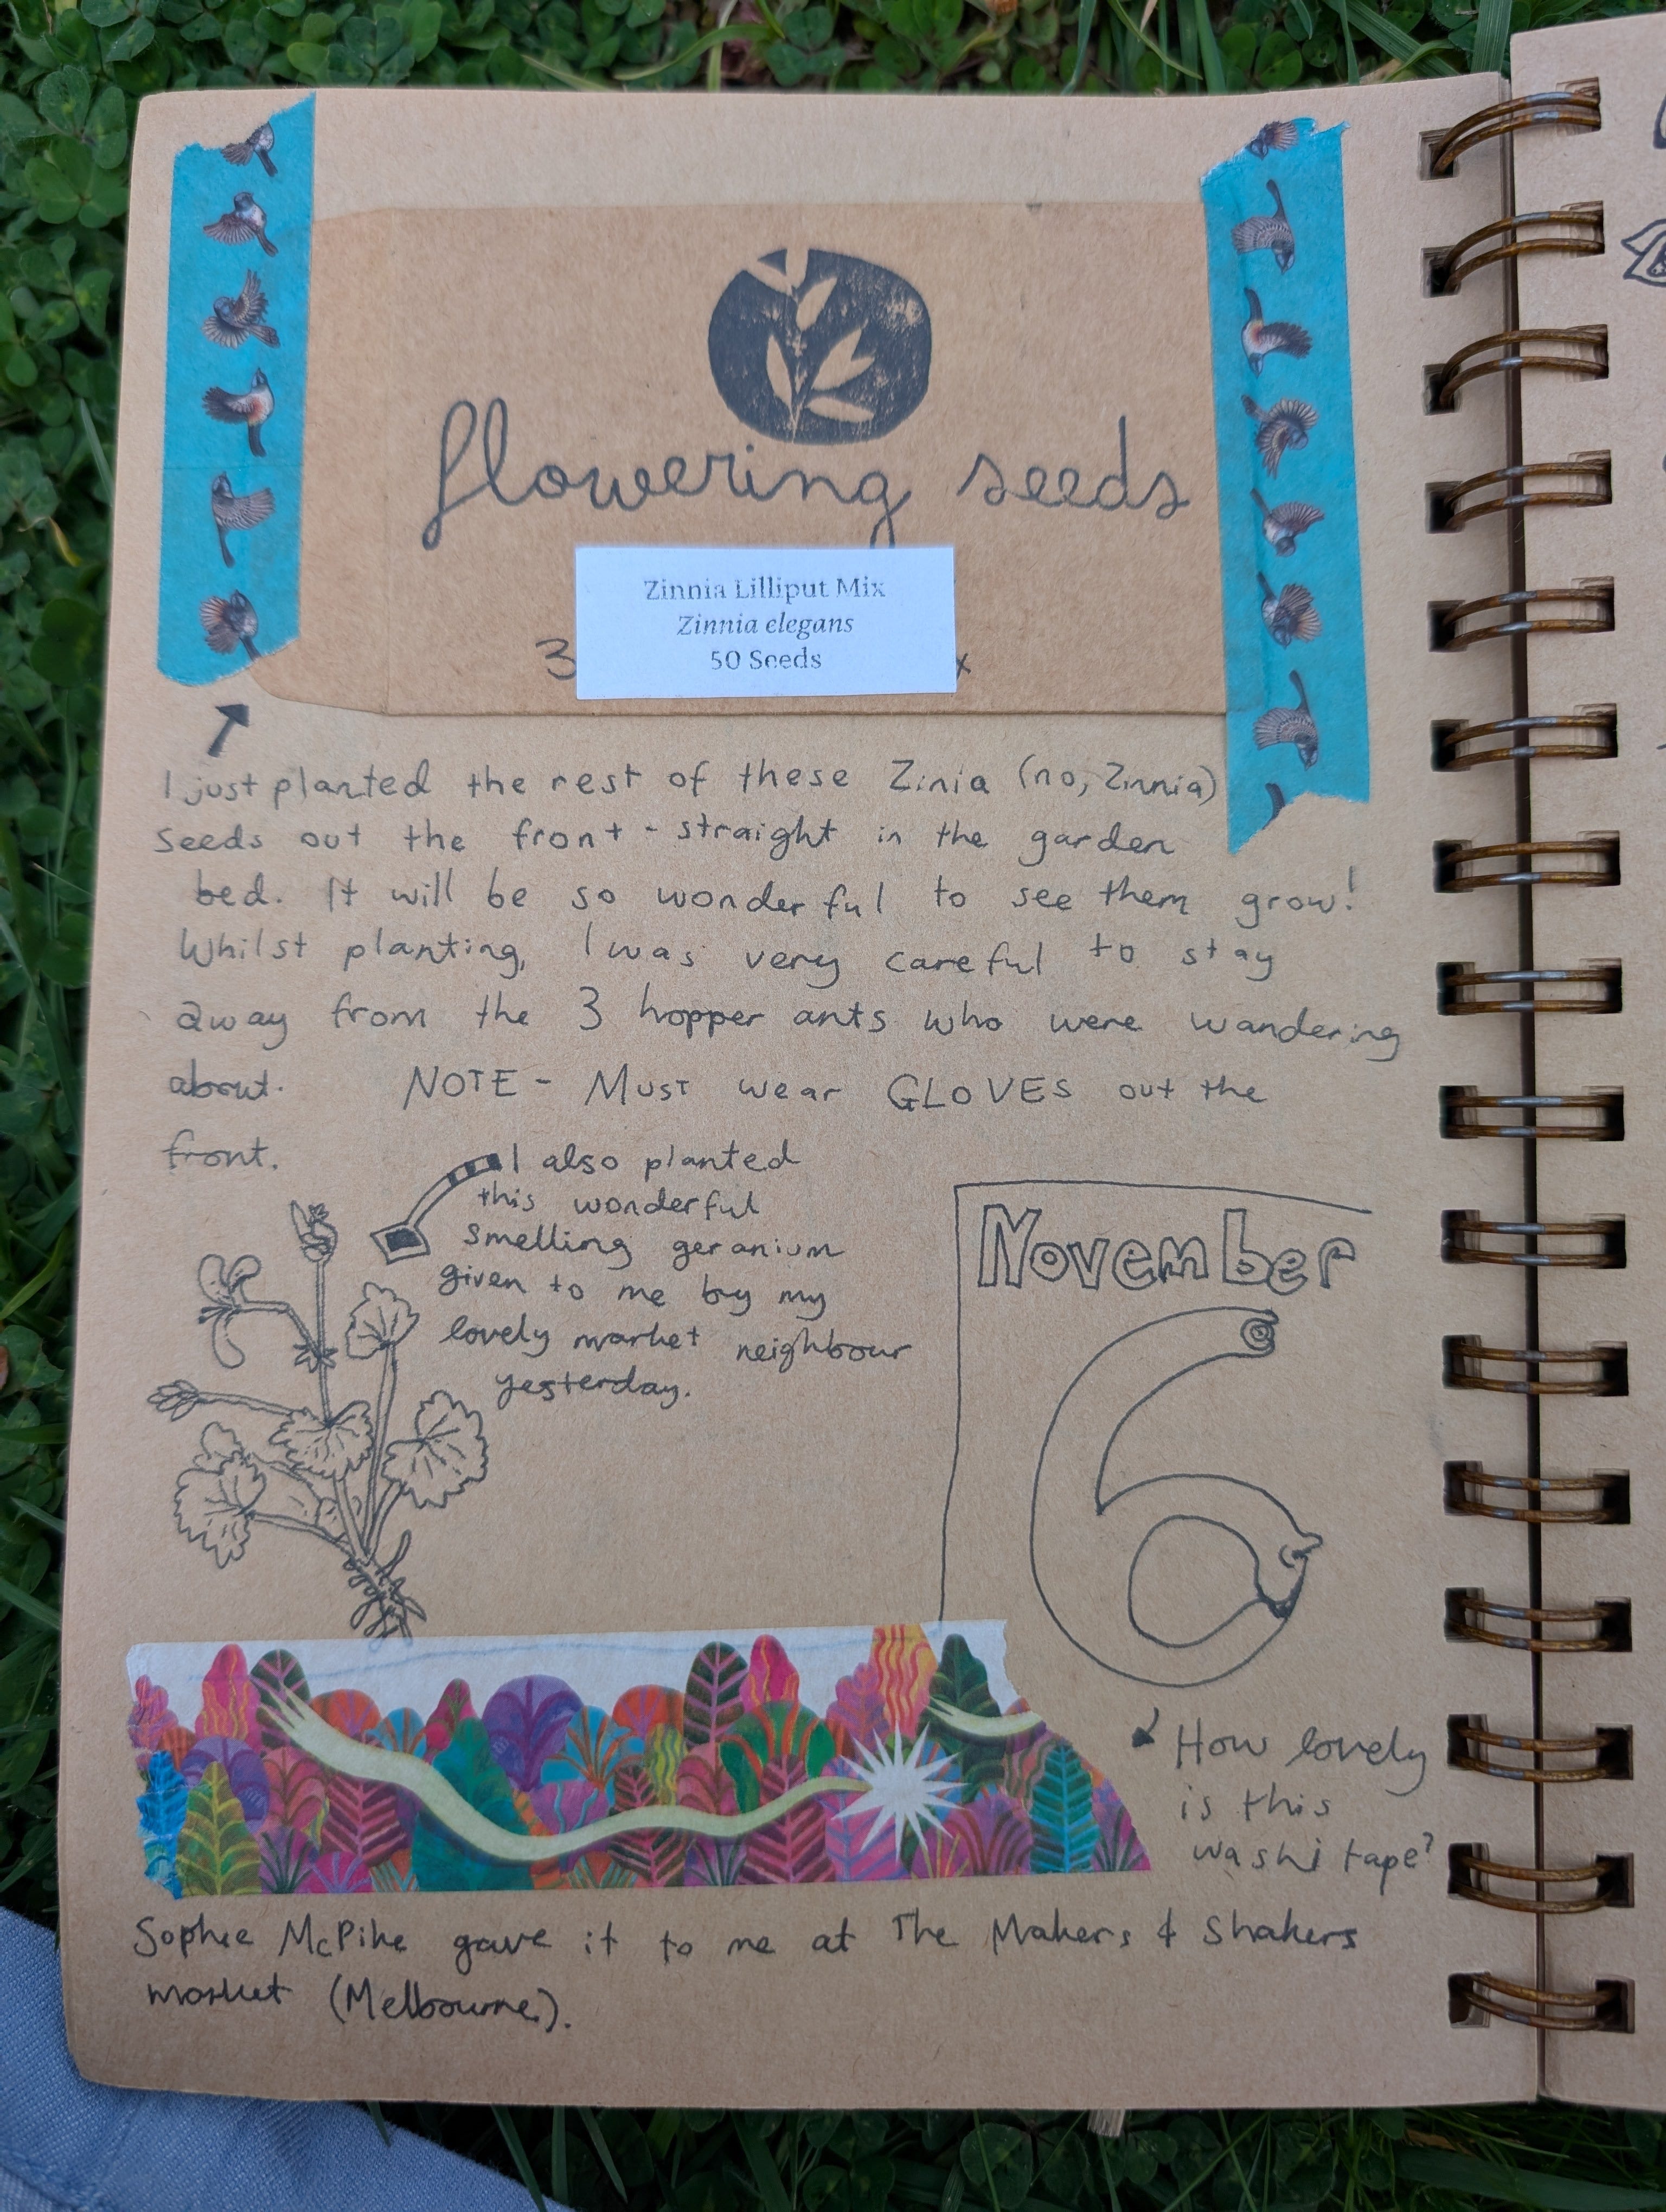 flowering seeds
Zinnia Lilliput Mix
Zinnia elegans
3
50 Seeds
x
I just planted the rest of these Zinia (no, Zinnia)
seeds out the front - straight in the garden
bed. It will be so wonderful to see them grow!
Whilst planting, I was very careful to stay
away from the 3 hopper ants who were wandering
about. NOTE - Must wear GLOVES out the
front.
I also planted
this wonderful
smelling geranium
given to me by my
lovely market neighbour
yesterday.
November
6
How lovely
is this
washi tape?
Sophie McPike gave it to me at The Makers & Shakers
market (Melbourne).